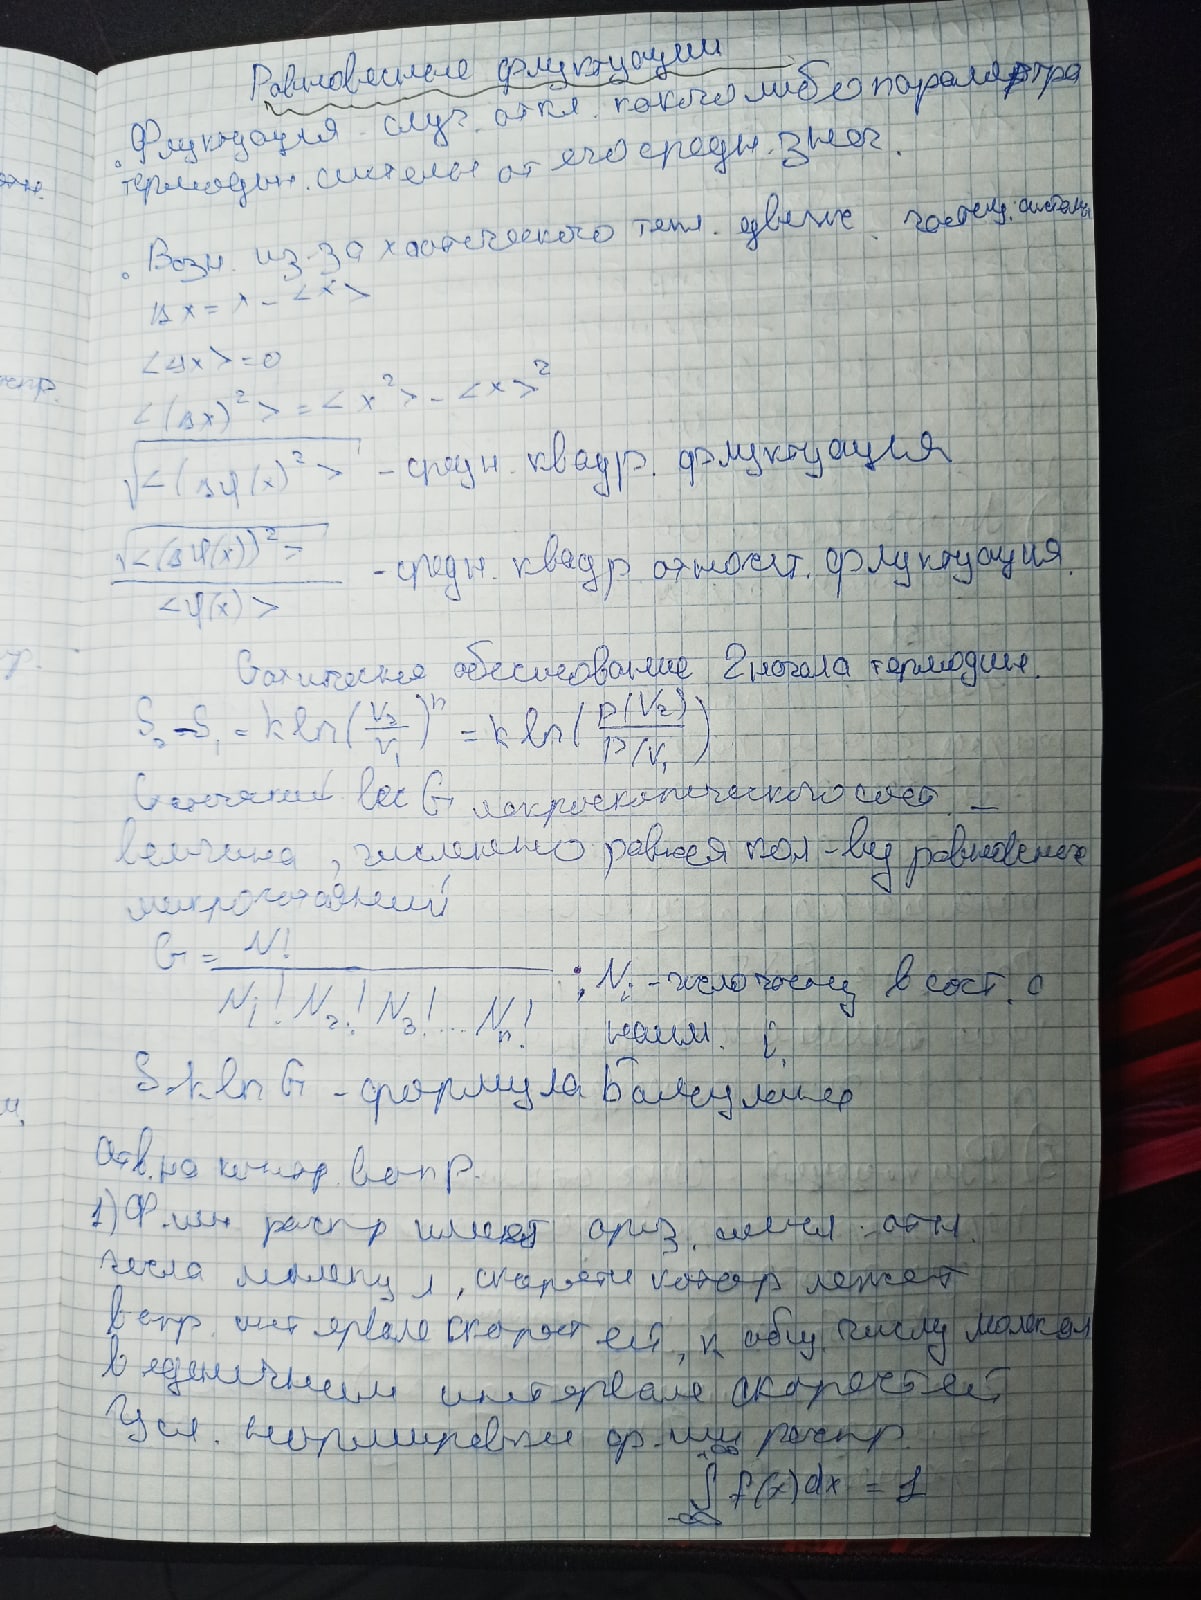 Равновесные флуктуации
Флуктуация - случ. откл. какого либо параметра
термодин. системы от его средн. знач.
Возн. из-за хаотического тепл. движ. частиц. системы
Δx = x - <x>
<Δx> = 0
<(Δx)²> = <x²> - <x>²
√<(Δφ(x)²> - средн. квадр. флуктуация
√<(Δφ(x))²> / <φ(x)> - средн. квадр относит. флуктуация.
2 начала термодин.
S₂ - S₁ = k ln(V₂/V₁)ⁿ = k ln(P(V₂)/P(V₁)
вес G макроскопического сост. -
величина, численно равная кол-ву равновесных
микросостояний
G = N! / N₁! N₂! N₃! ... Nₙ! ; Nᵢ - число частиц в сост. с
наим. i
S = k ln G - формула Больцмана
Отв. на контр. вопр.
1) Ф-ии распр имеют физ. смысл - отн.
числа молекул, скорости котор лежат
в опр. интервале скоростей, к общ. числу молекул
в единичном интервале скоростей
Усл. нормировки ф-ии распр.
∫₋∞^+∞ f(x)dx = 1
отн.